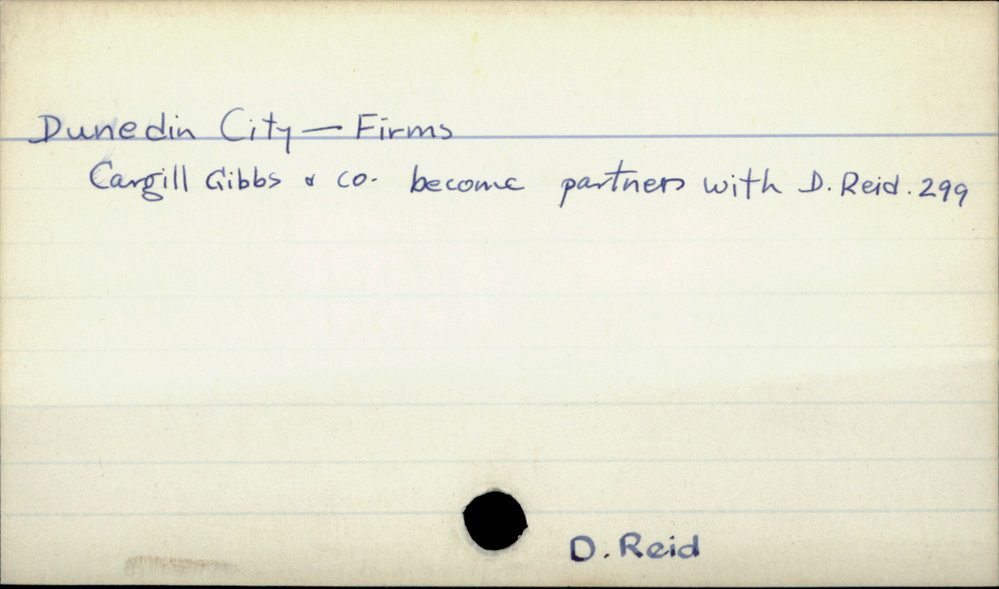 Dunedin City — Firms
Cargill Gibbs & co. become partners with D. Reid. 299
D. Reid